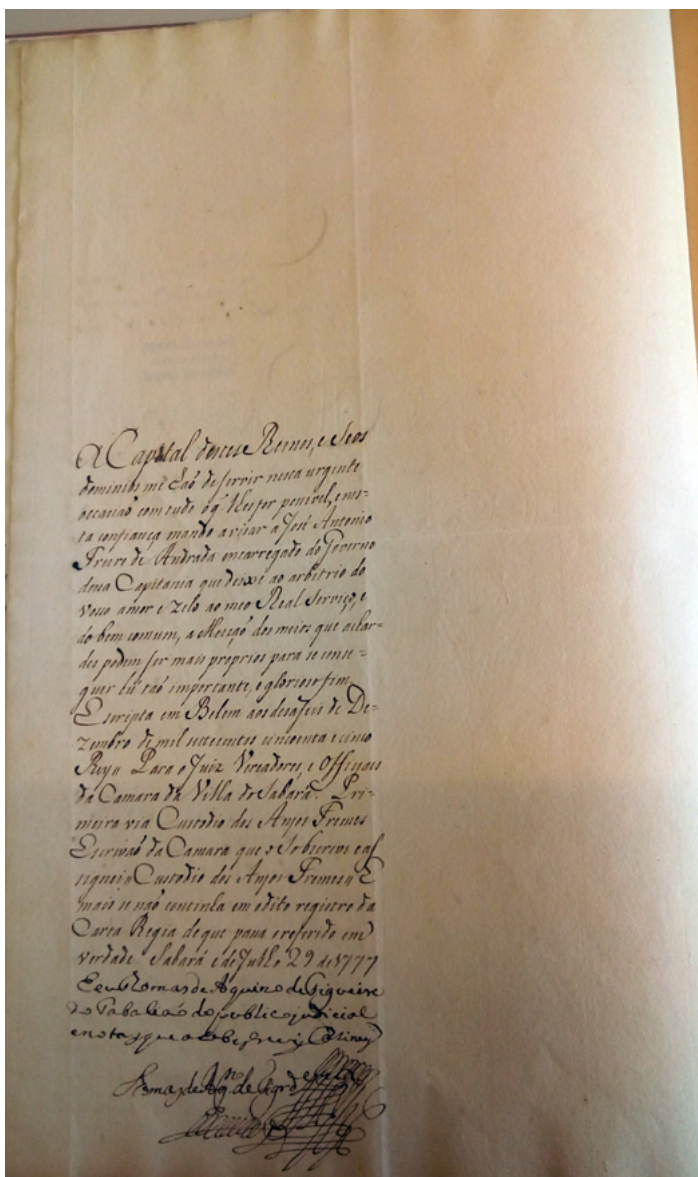 A Capital desses Reinos, e seos
dominios me haõ de servir nesta urgente
occaziaõ com tudo o q. lhes for pocivel, e nes-
ta confiança mando avizar a Jozé Antonio
Freire de Andrada encarregado do Governo
dessa Capitania que deixe ao arbitrio do
vosso amor e zelo ao meo Real Serviço, e
do bem comum, a Eleiçaõ dos meios que achar-
des podem ser mais proprios para se conse-
guir hũ taõ importante, e gloriozo fim.
Escripta em Belem aos dezaseis de De-
zembro de mil setecentos cincoenta e cinco
Rey〃 Para o Juiz Vereadores, e Officiaes
da Camara da Villa do Sabará. Pri-
meira via Custodio dos Anjos
Escrivaõ da Camara que o sobscrevi e as
signei〃 Custodio dos Anjos 〃 E
mais se naõ continha em o dito registro da
Carta Regia de que passa o referido em
verdade. Sabará e de Julho 29 de 1777
E eu Thomas de Aquino de
Tabaliaõ do publico judicial
e notas que o sobescrevy e asiney
Thomas de Aq.no de